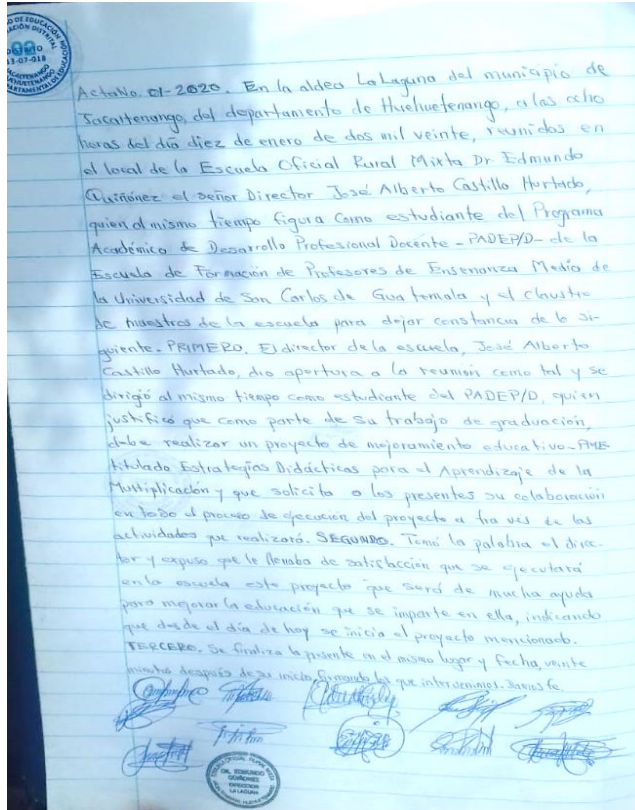 DISTRITO
13-07-018
Acta No. 01-2020. En la aldea La Laguna del municipio de
Jacaltenango, del departamento de Huehuetenango, a las ocho
horas del día diez de enero de dos mil veinte, reunidos en
el local de la Escuela Oficial Rural Mixta Dr. Edmundo
Quiñónez el señor Director José Alberto Castillo Hurtado,
quien al mismo tiempo figura como estudiante del Programa
Académico de Desarrollo Profesional Docente -PADEP/D- de la
Escuela de Formación de Profesores de Enseñanza Media de
la Universidad de San Carlos de Guatemala y el claustro
de maestros de la escuela para dejar constancia de lo si-
guiente. PRIMERO. El director de la escuela, José Alberto
Castillo Hurtado, dio apertura a la reunión como tal y se
dirigió al mismo tiempo como estudiante del PADEP/D, quien
justificó que como parte de su trabajo de graduación,
debe realizar un proyecto de mejoramiento educativo-PME-
titulado Estrategias Didácticas para el Aprendizaje de la
Multiplicación y que solicita a los presentes su colaboración
en todo el proceso de ejecución del proyecto a través de las
actividades que realizará. SEGUNDO. Tomó la palabra el direc-
tor y expuso que le llenaba de satisfacción que se ejecutará
en la escuela este proyecto que será de mucha ayuda
para mejorar la educación que se imparte en ella, indicando
que desde el día de hoy se inicia el proyecto mencionado.
TERCERO. Se finaliza la presente en el mismo lugar y fecha, veinte
minutos después de su inicio, firmando los que intervenimos. Damos fe.
DR. EDMUNDO
QUIÑONEZ
DIRECCION
LA LAGUNA